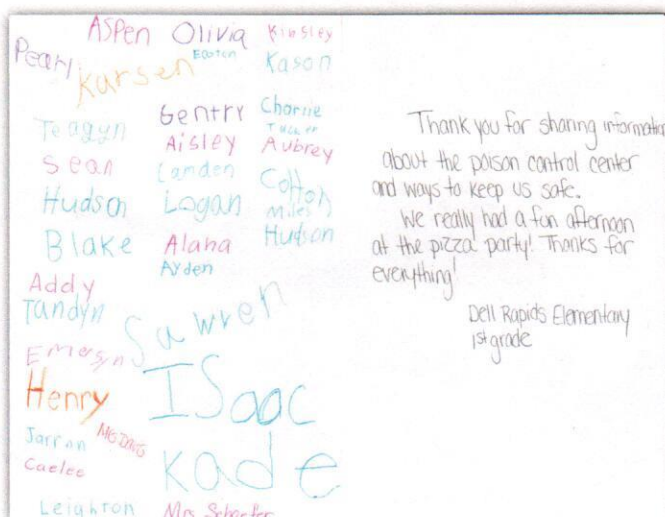 Aspen Olivia Kinsley
Pearl Easton
Karsen Kason
Gentry Charlie
Teagyn Tucker
Aisley Aubrey
Sean Landen
Colton
Hudson Logan Miles
Blake Alana Hudson
Ayden
Addy
Tandyn
Sawren
Emersyn
Henry ISaac
Jarron
Caelee Kade
Leighton Mrs. Schaefer
Thank you for sharing information
about the poison control center
and ways to keep us safe.
We really had a fun afternoon
at the pizza party! Thanks for
everything!
Dell Rapids Elementary
1st grade